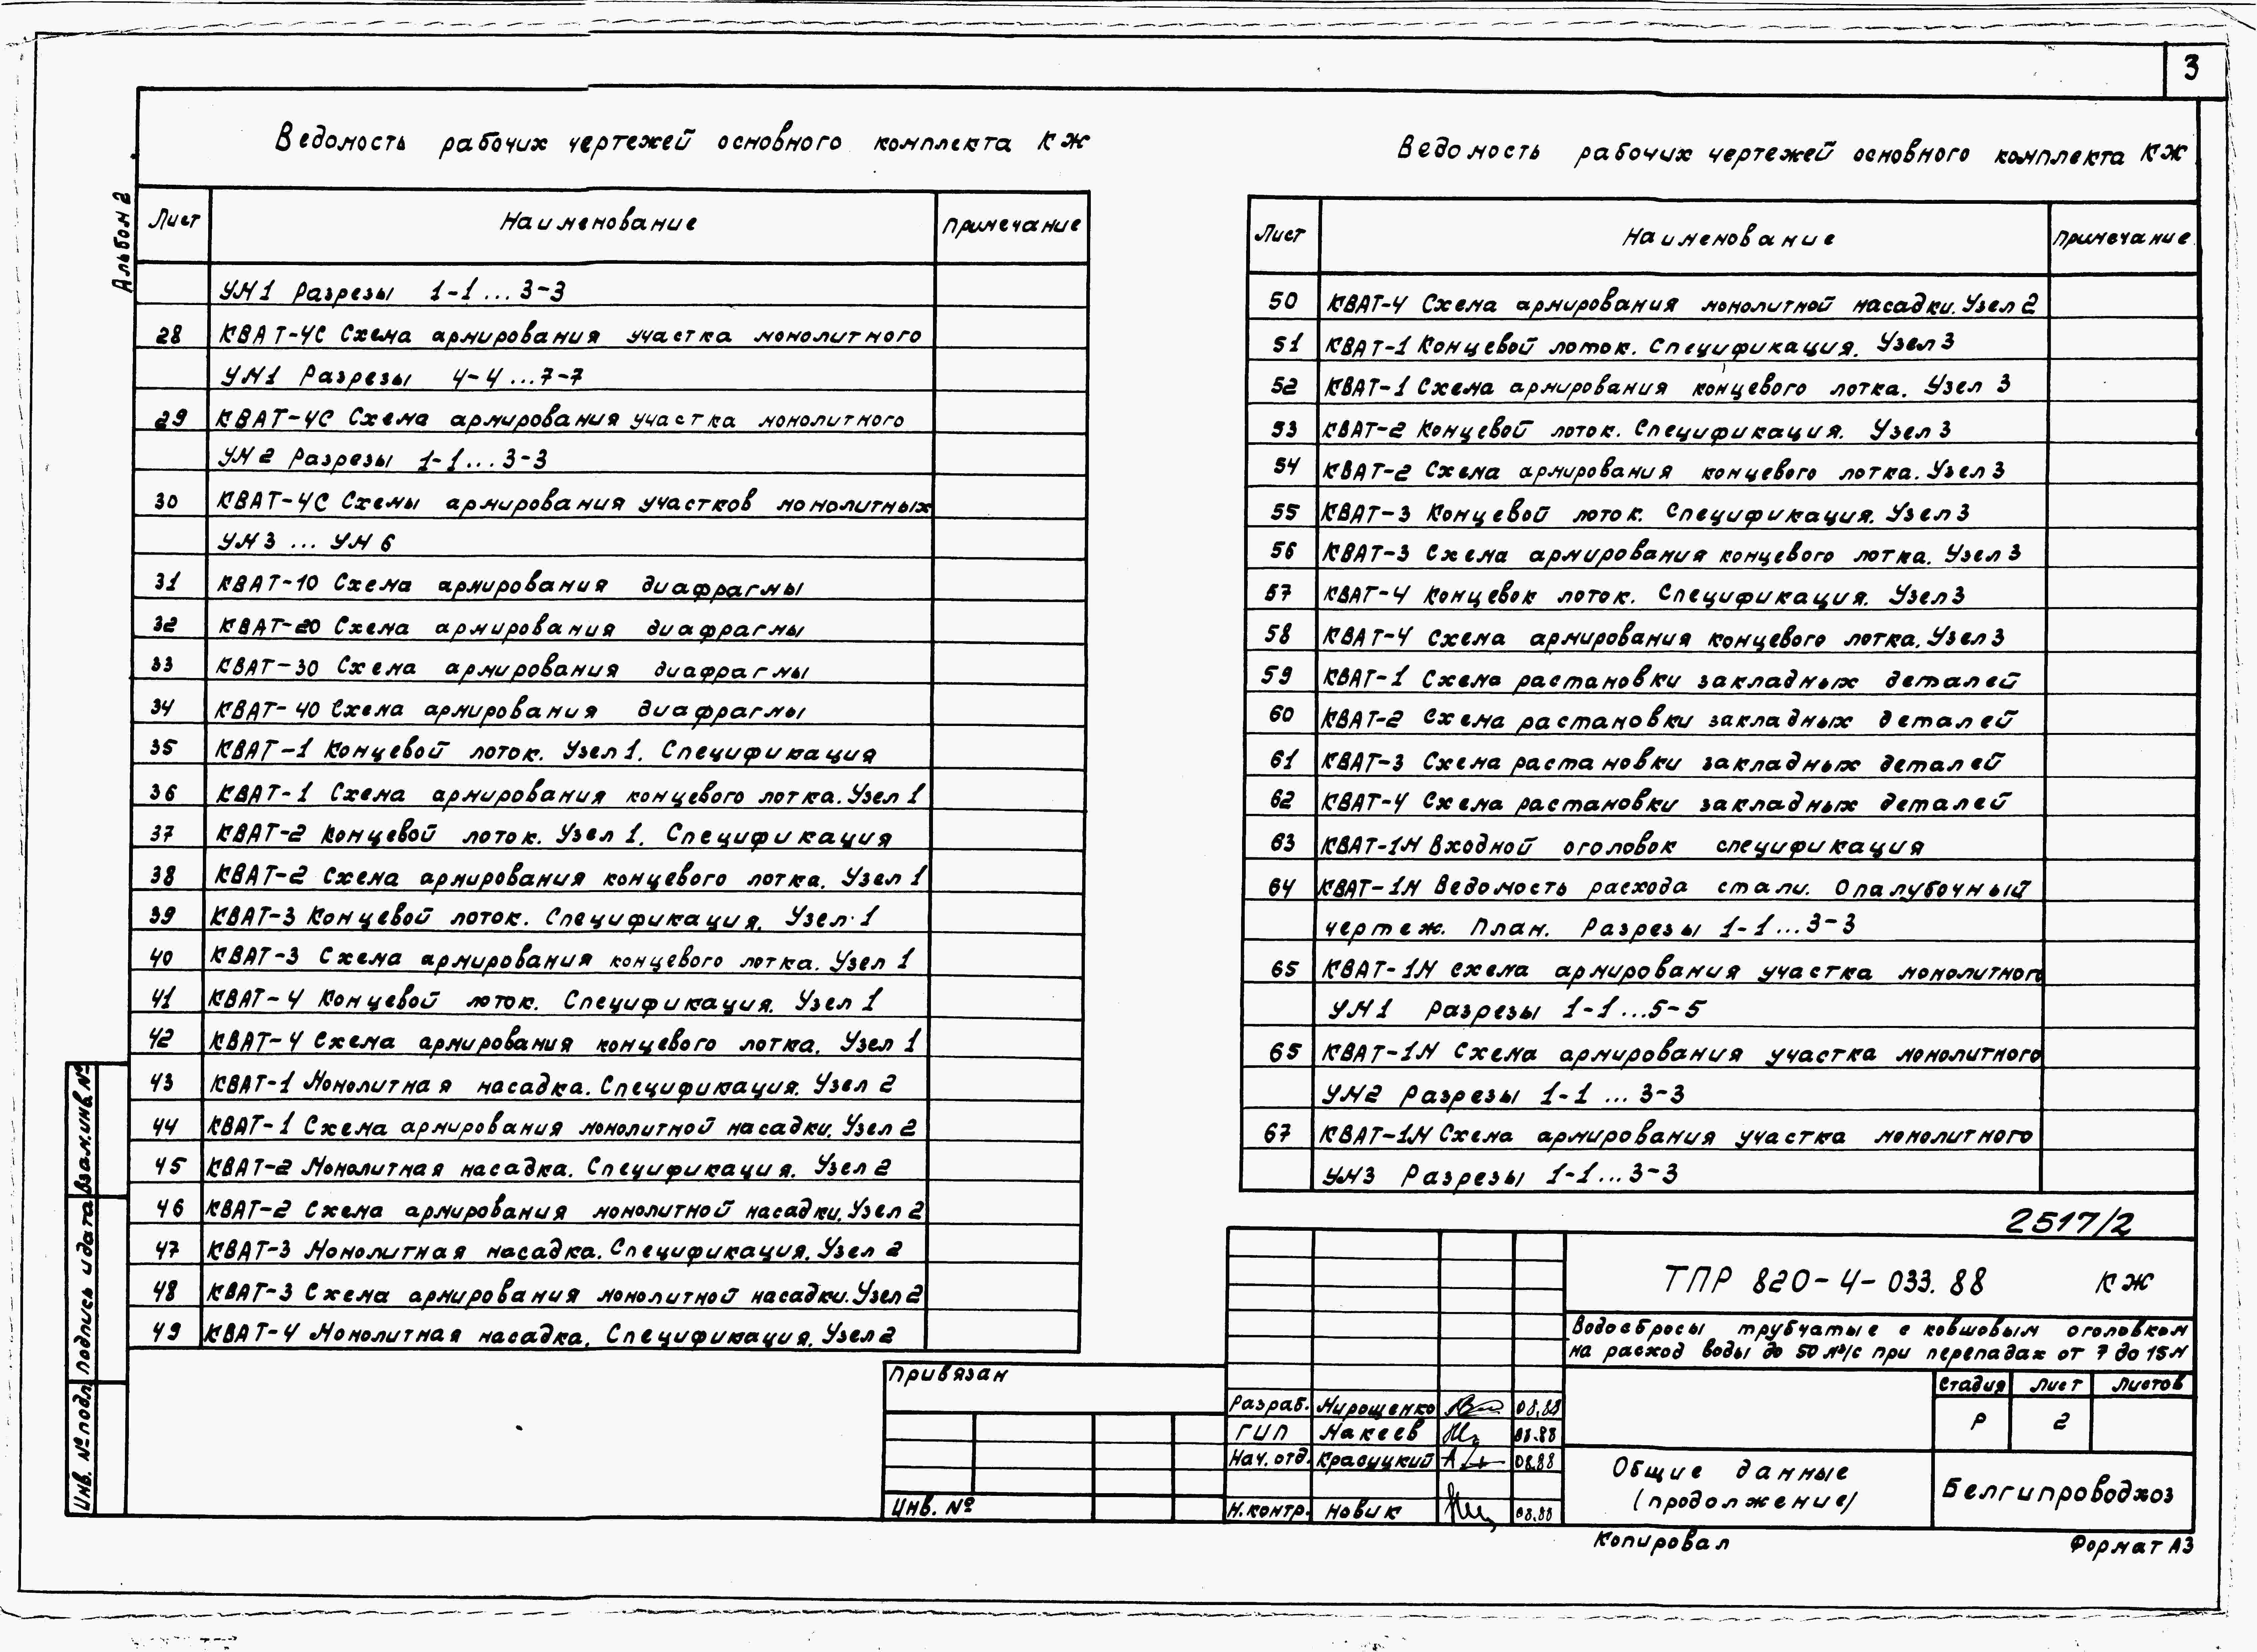 3
Альбом 2
Ведомость рабочих чертежей основного комплекта КЖ
Лист Наименование Примечание
УМ1 Разрезы 1-1...3-3
28 КВАТ-4С Схема армирования участка монолитного
УМ1 Разрезы 4-4...7-7
29 КВАТ-4С Схема армирования участка монолитного
УМ2 Разрезы 1-1...3-3
30 КВАТ-4С Схемы армирования участков монолитных
УМ3 ... УМ6
31 КВАТ-10 Схема армирования диафрагмы
32 КВАТ-20 Схема армирования диафрагмы
33 КВАТ-30 Схема армирования диафрагмы
34 КВАТ-40 Схема армирования диафрагмы
35 КВАТ-1 Концевой лоток. Узел 1. Спецификация
36 КВАТ-1 Схема армирования концевого лотка. Узел 1
37 КВАТ-2 Концевой лоток. Узел 1. Спецификация
38 КВАТ-2 Схема армирования концевого лотка. Узел 1
39 КВАТ-3 Концевой лоток. Спецификация. Узел 1
40 КВАТ-3 Схема армирования концевого лотка. Узел 1
41 КВАТ-4 Концевой лоток. Спецификация. Узел 1
42 КВАТ-4 Схема армирования концевого лотка. Узел 1
43 КВАТ-1 Монолитная насадка. Спецификация. Узел 2
44 КВАТ-1 Схема армирования монолитной насадки. Узел 2
45 КВАТ-2 Монолитная насадка. Спецификация. Узел 2
46 КВАТ-2 Схема армирования монолитной насадки. Узел 2
47 КВАТ-3 Монолитная насадка. Спецификация. Узел 2
48 КВАТ-3 Схема армирования монолитной насадки. Узел 2
49 КВАТ-4 Монолитная насадка. Спецификация. Узел 2
Ведомость рабочих чертежей основного комплекта КЖ
Лист Наименование Примечание
50 КВАТ-4 Схема армирования монолитной насадки. Узел 2
51 КВАТ-1 Концевой лоток. Спецификация. Узел 3
52 КВАТ-1 Схема армирования концевого лотка. Узел 3
53 КВАТ-2 Концевой лоток. Спецификация. Узел 3
54 КВАТ-2 Схема армирования концевого лотка. Узел 3
55 КВАТ-3 Концевой лоток. Спецификация. Узел 3
56 КВАТ-3 Схема армирования концевого лотка. Узел 3
57 КВАТ-4 Концевок лоток. Спецификация. Узел 3
58 КВАТ-4 Схема армирования концевого лотка. Узел 3
59 КВАТ-1 Схема растановки закладных деталей
60 КВАТ-2 Схема растановки закладных деталей
61 КВАТ-3 Схема растановки закладных деталей
62 КВАТ-4 Схема растановки закладных деталей
63 КВАТ-1М Входной оголовок спецификация
64 КВАТ-1М Ведомость расхода стали. Опалубочный
чертеж. План. Разрезы 1-1...3-3
65 КВАТ-1М схема армирования участка монолитного
УМ1 Разрезы 1-1...5-5
65 КВАТ-1М Схема армирования участка монолитного
УМ2 Разрезы 1-1 ... 3-3
67 КВАТ-1М Схема армирования участка монолитного
УМ3 Разрезы 1-1...3-3
2517/2
ТПР 820-4-033.88 КЖ
Водосбросы трубчатые с ковшовым оголовком
на расход воды до 50 м³/с при перепадах от 7 до 15м
Стадия Лист Листов
Р 2
Общие данные
(продолжение)
Белгипроводхоз
Разраб. Мирошенко 08.88
ГИП Макеев 08.88
Нач. отд. Красуцкий 08.88
Н. контр. Новик 08.88
Привязан
Инв. №
Взам. инв. №
Подпись и дата
Инв. № подл.
Копировал Формат А3